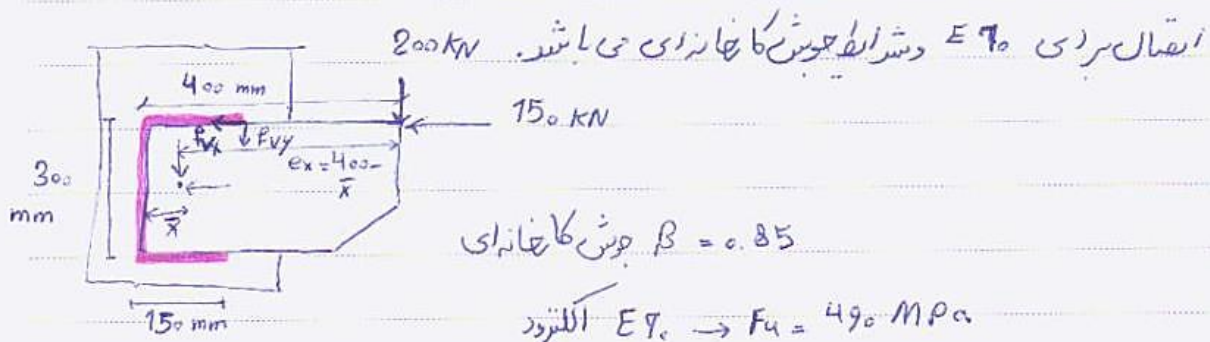 اتصال برای E70 و شرایط جوش کارخانه‌ای می باشد.
200 KN
400 mm
150 KN
fvx
fvy
ex = 400 - x̄
300 mm
x̄
جوش کارخانه‌ای β = 0.85
150 mm
الکترود E70 → Fu = 490 MPa